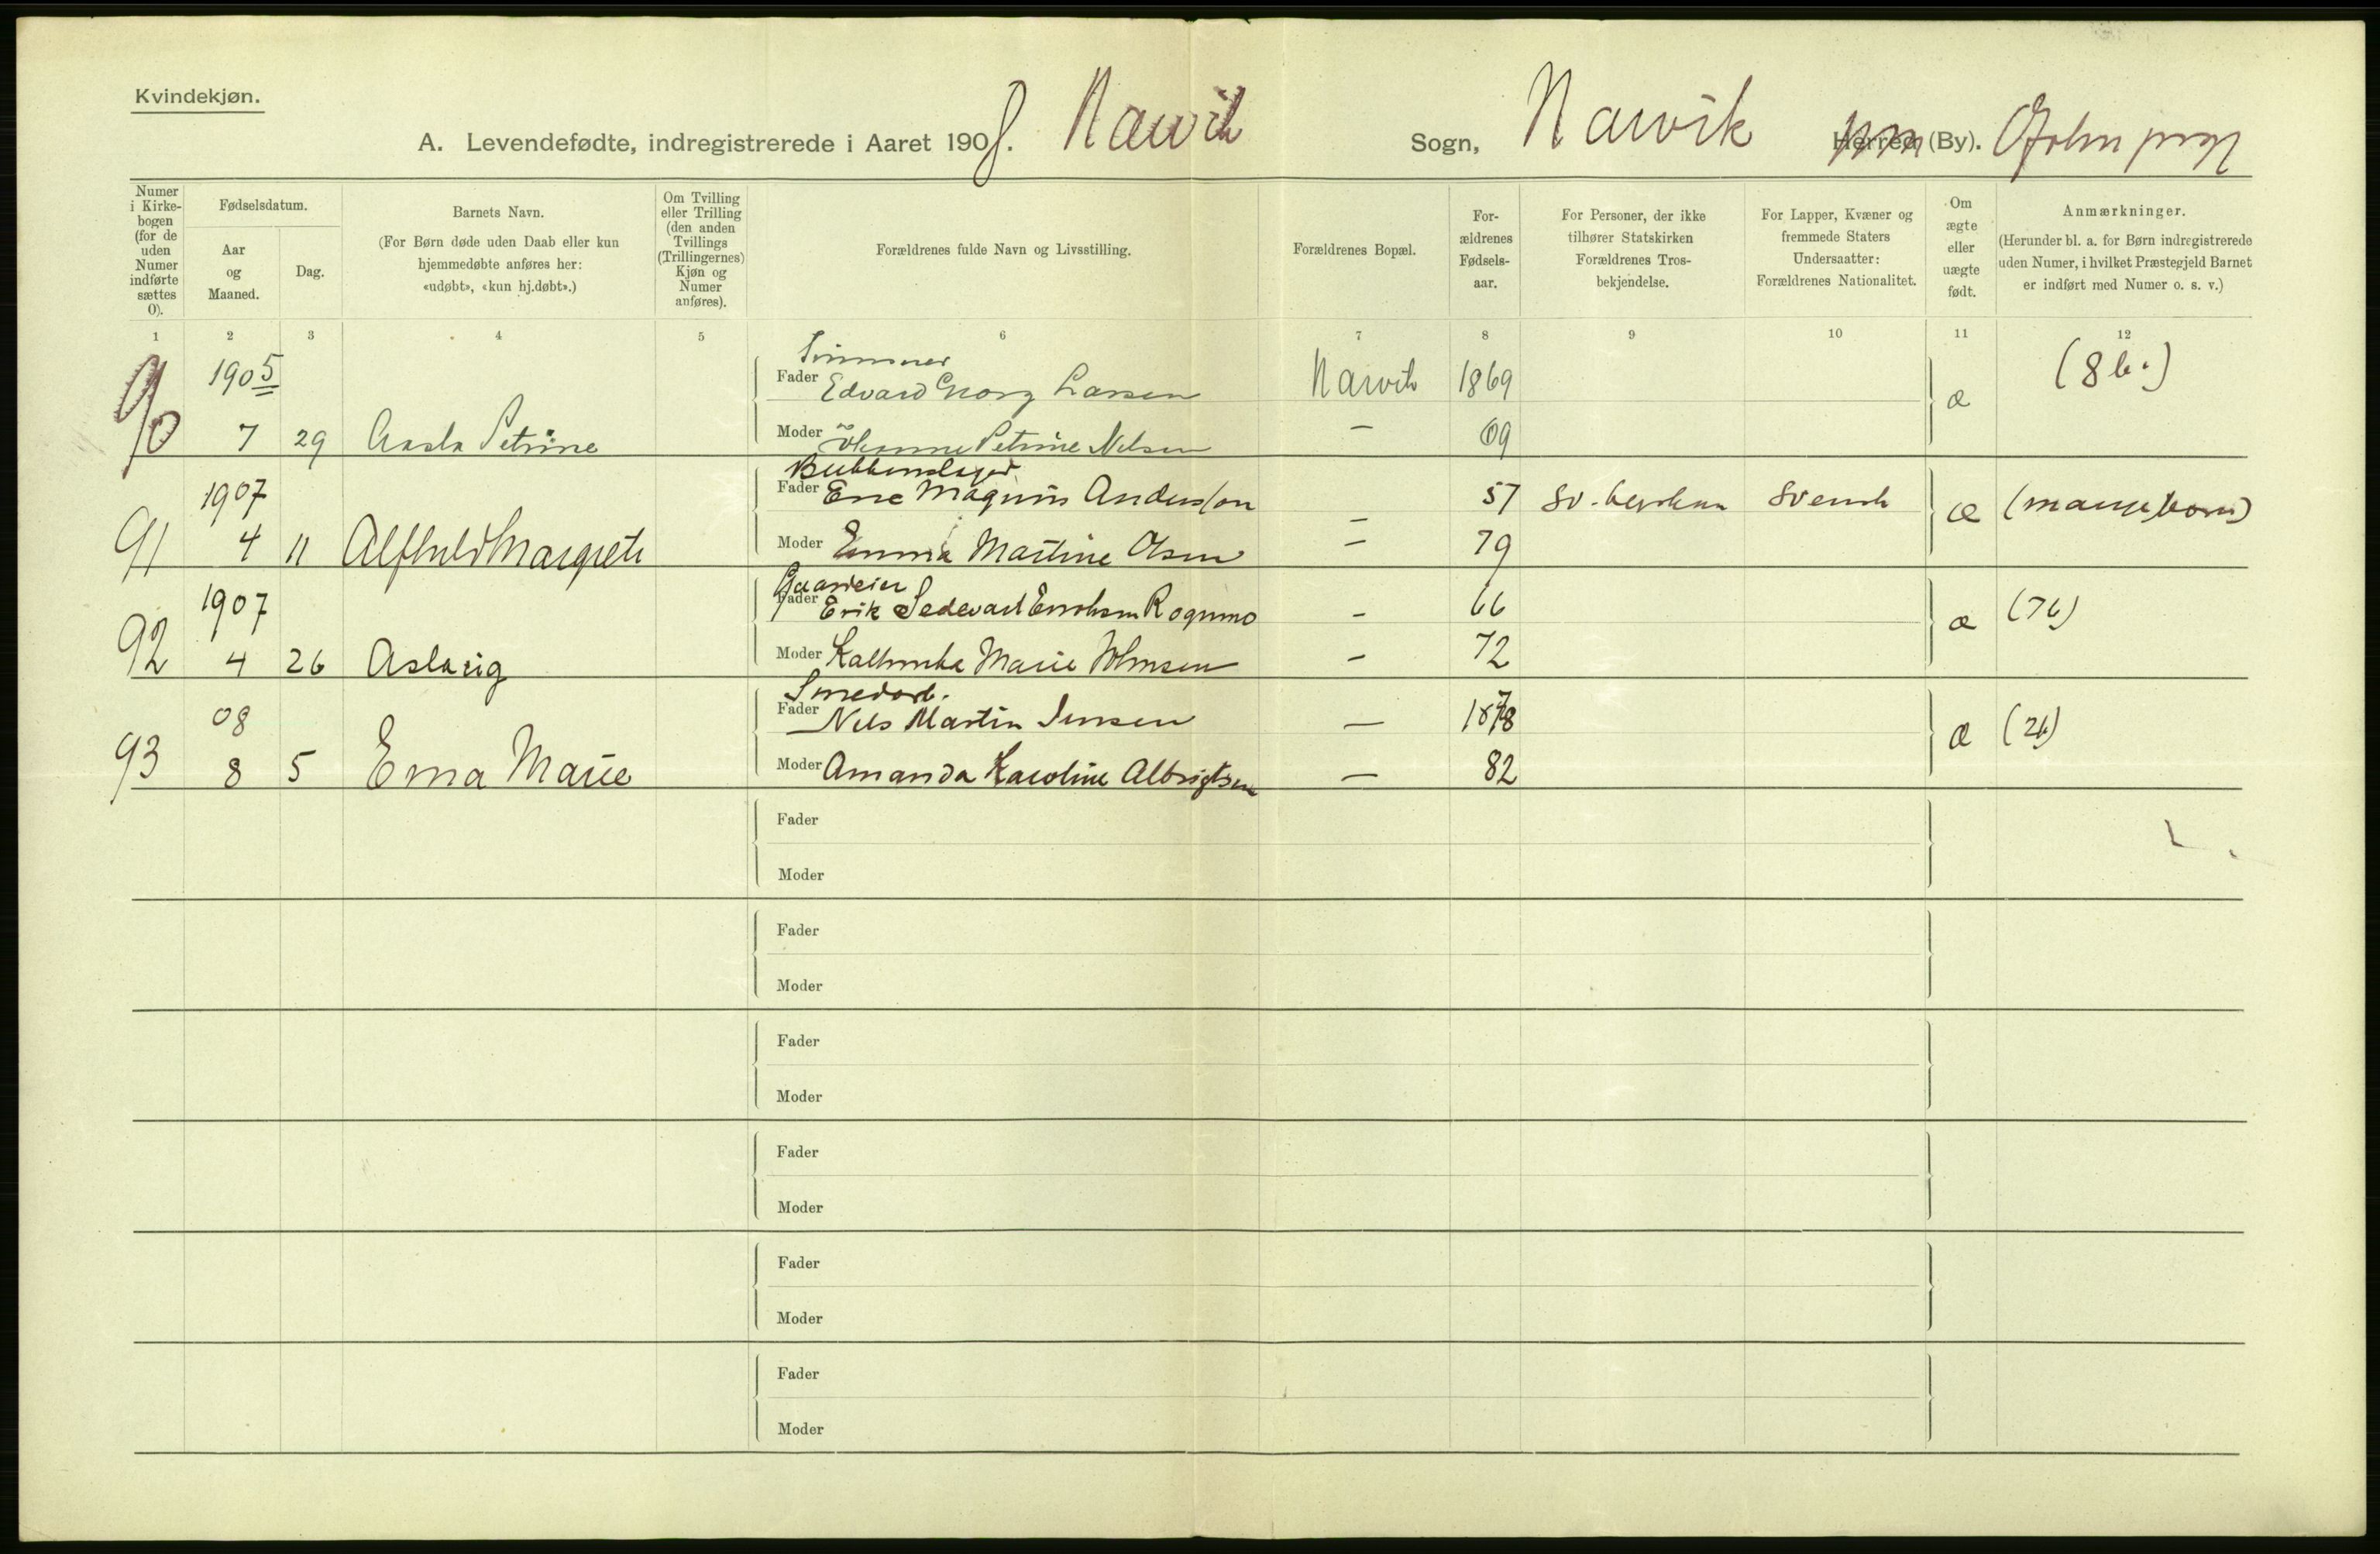 Kvindekjøn.
A. Levendefødte, indregistrerede i Aaret 1908. Narvik Sogn, Narvik Herred (By).
Numer i Kirke-bogen (for de uden Numer indførte sættes 0).
Fødselsdatum.
Aar og Maaned.
Dag.
Barnets Navn.
(For Børn døde uden Daab eller kun hjemmedøbte anføres her: «udøbt», «kun hj.døbt».)
Om Tvilling eller Trilling (den anden Tvillings (Trillingernes) Kjøn og Numer anføres).
Forældrenes fulde Navn og Livsstilling.
Forældrenes Bopæl.
For-ældrenes Fødsels-aar.
For Personer, der ikke tilhører Statskirken Forældrenes Tros-bekjendelse.
For Lapper, Kvæner og fremmede Staters Undersaatter: Forældrenes Nationalitet.
Om ægte eller uægte født.
Anmærkninger.
(Herunder bl. a. for Børn indregistrerede uden Numer, i hvilket Præstegjeld Barnet er indført med Numer o. s. v.)
1 2 3 4 5 6 7 8 9 10 11 12
1905 (8 b.)
Fader Edvard Georg Larsen Narvik 1869 æ
90 7 29 Aasla Petrine Moder Johanne Petrine Nilsen — 69
1907 Fader Magnus Andersson — 57 Svensk æ
91 4 11 Alfhild Margrete Moder Emma Martine Olsen — 79
Gaardeier
1907 Fader Erik — 66 æ (7b)
92 4 26 Aslaug Moder Marie Johnsen — 72
Smedarb.
08 Fader Nils Martin Jensen — 1878 æ (2b)
93 8 5 Erna Marie Moder Amanda Karoline Albrigtsen — 82
Fader
Moder
Fader
Moder
Fader
Moder
Fader
Moder
Fader
Moder
Fader
Moder